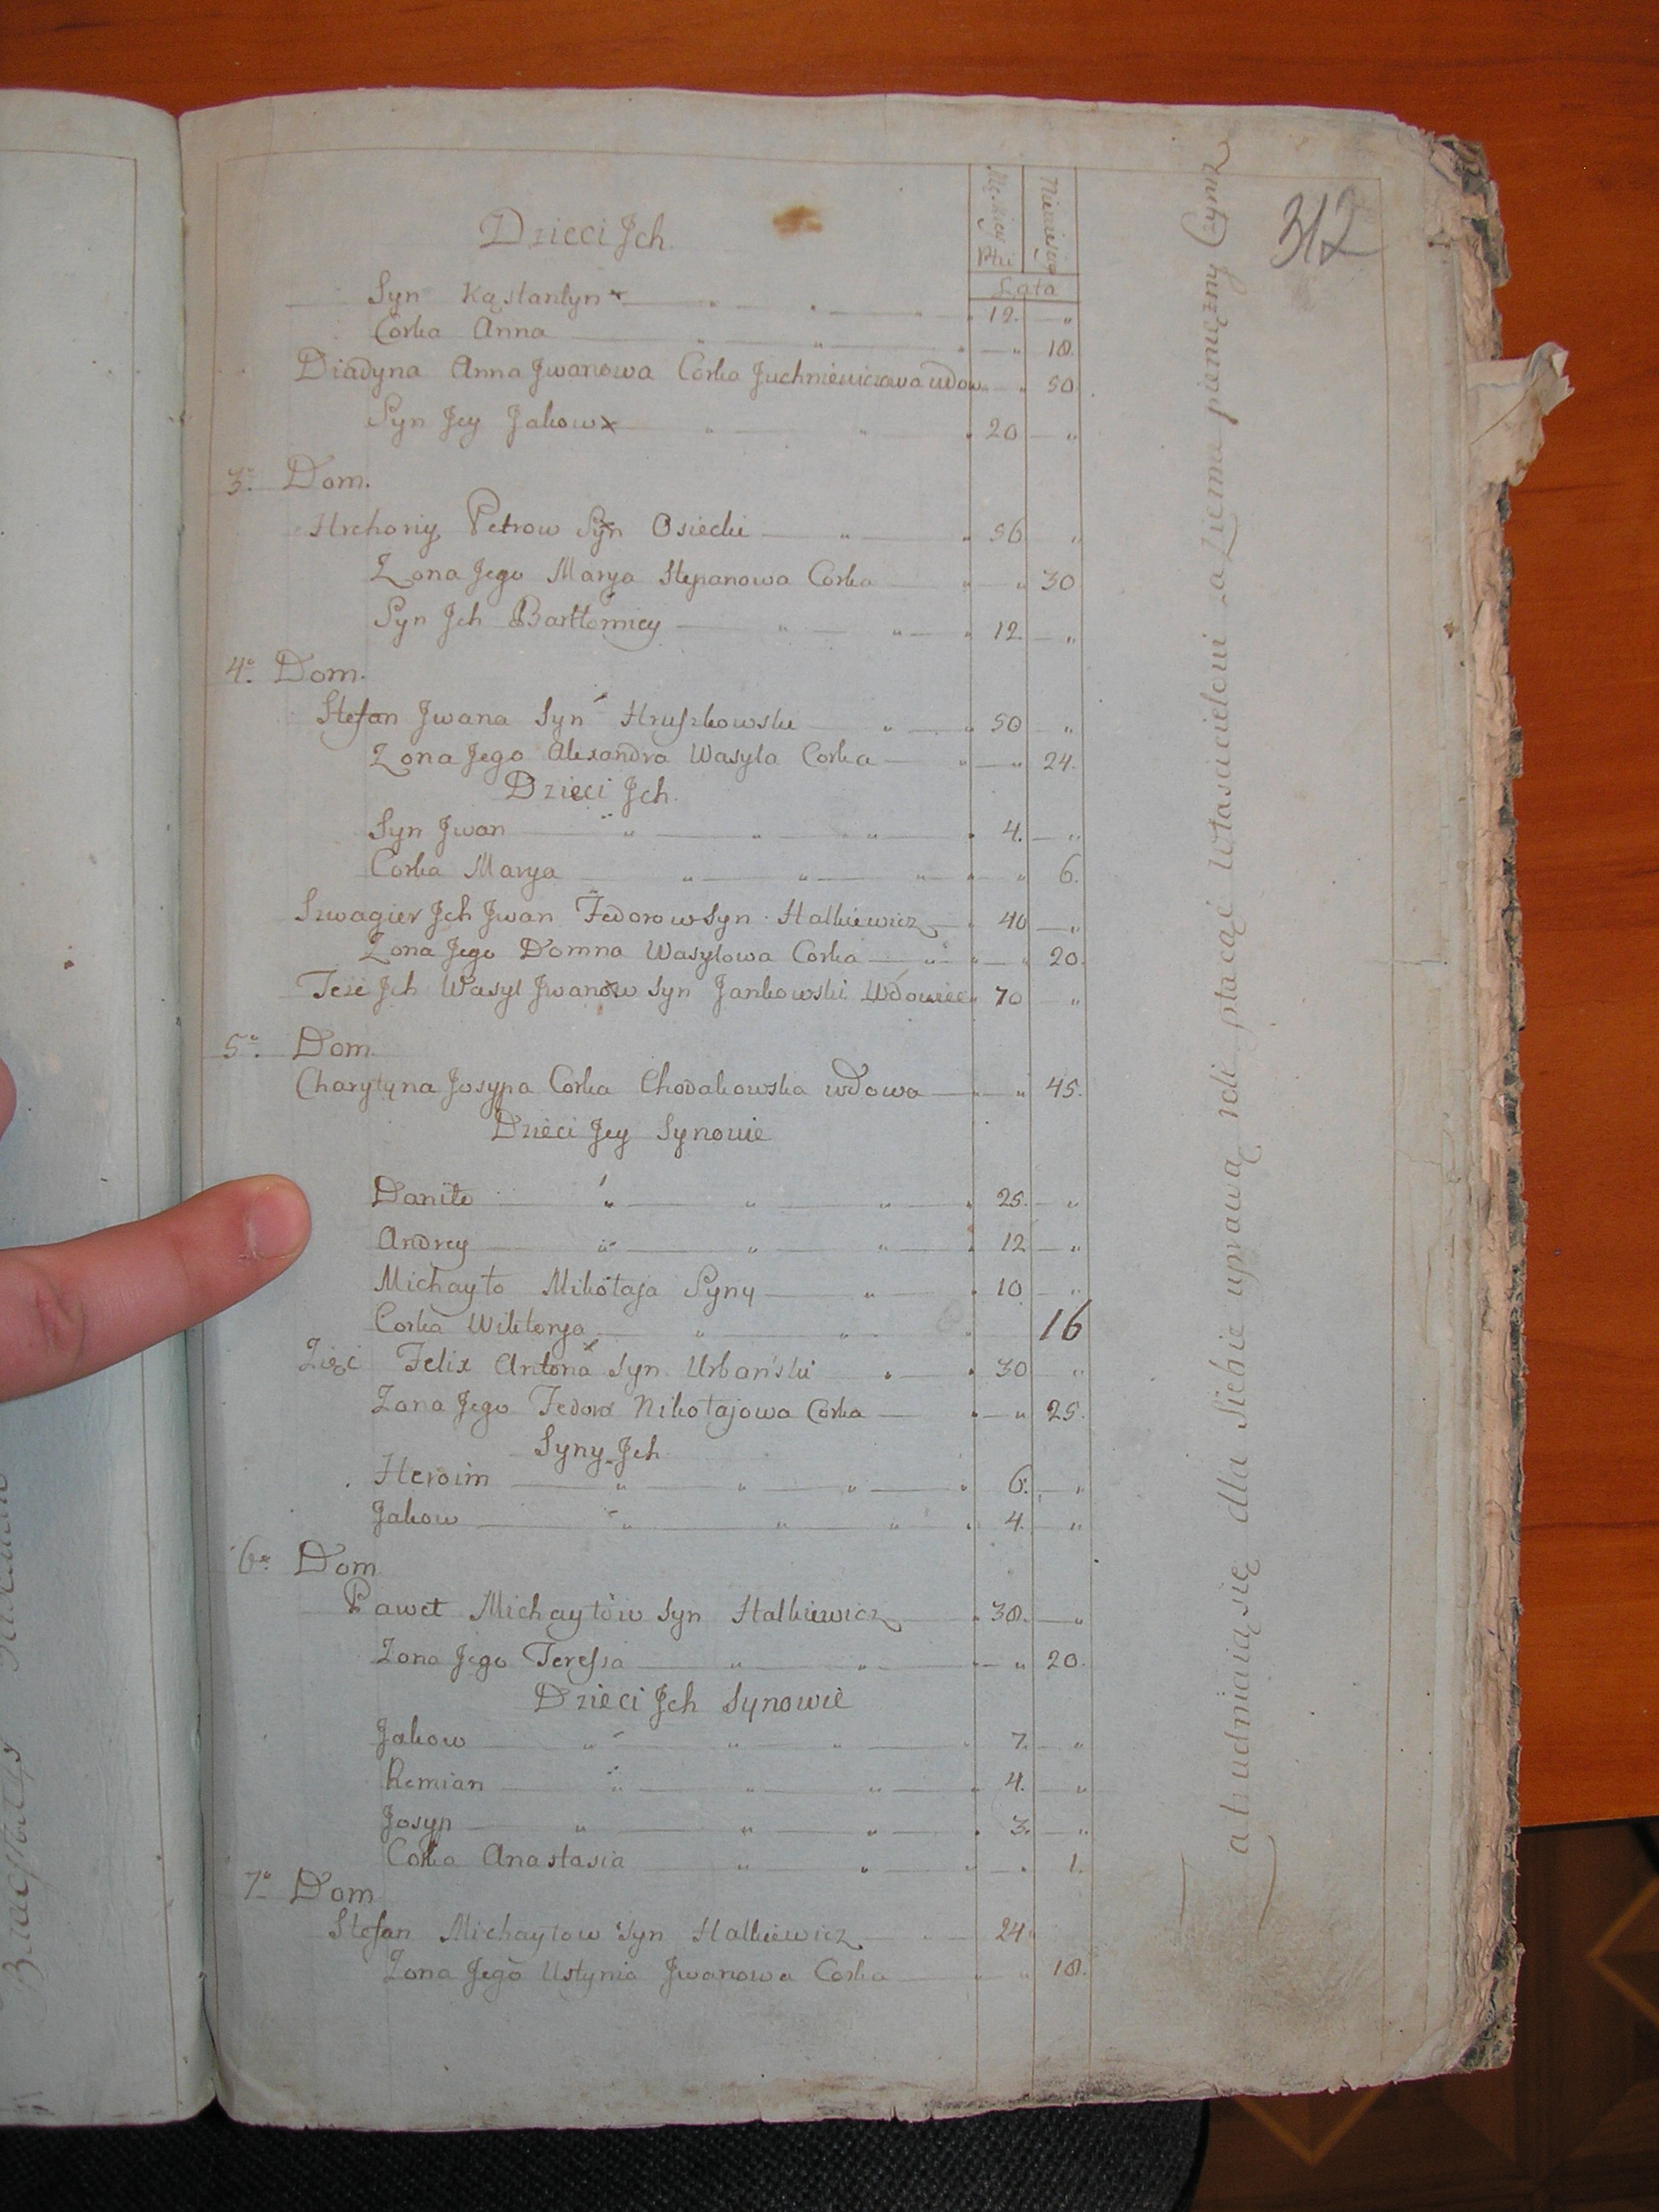 312
Męskiey Płci
Niewieściey
Lata
Dzieci Jch
Syn Kąstantyn 12. "
Corka Anna " 18.
Diadyna Anna Jwanowa Corka Juchniewiczowa wdow. " 50
Syn Jey Jakow 20 "
3o. Dom.
Hrehoriy Petrow Syn Osiecki 56 "
Zona Jego Marya Stepanowa Corka " 30
Syn Jch Bartłomiey 12. "
4o. Dom.
Stefan Jwana Syn Hruszkowski 50 "
Zona Jego Alexandra Wasyla Corka " 24.
Dzieci Jch.
Syn Jwan 4. "
Corka Marya " 6.
Szwagier Jch Jwan Fedorow Syn Halkiewicz 40 "
Zona Jego Domna Wasylowa Corka " 20.
Teść Jch Wasyl Jwanow Syn Jankowski Wdowiec 70 "
5o. Dom.
Charytyna Josypa Corka Chodakowska wdowa " 45.
Dzieci Jey Synowie
Daniło 25. "
Andrey 12 "
Michayło Mikołaja Syny 10 "
Corka Wiktorya 16
Zięć Felix Antona Syn Urbański 30 "
Zona Jego Fedora Nikołajowa Corka " 25.
Syny Jch
Heroim 6. "
Jakow 4. "
6o. Dom
Paweł Michayłow Syn Halkiewicz 38. "
Zona Jego Teressa " 20.
Dzieci Jch Synowie
Jakow 7. "
Remian 4. "
Josyp 3. "
Corka Anastasia 1.
7o Dom
Stefan Michayłow Syn Halkiewicz 24
Zona Jego Ustynia Jwanowa Corka " 18.
Zatrudniaią się dla Siebie uprawą roli płacąc Włascicielowi za Ziemie pieniężny Czynsz